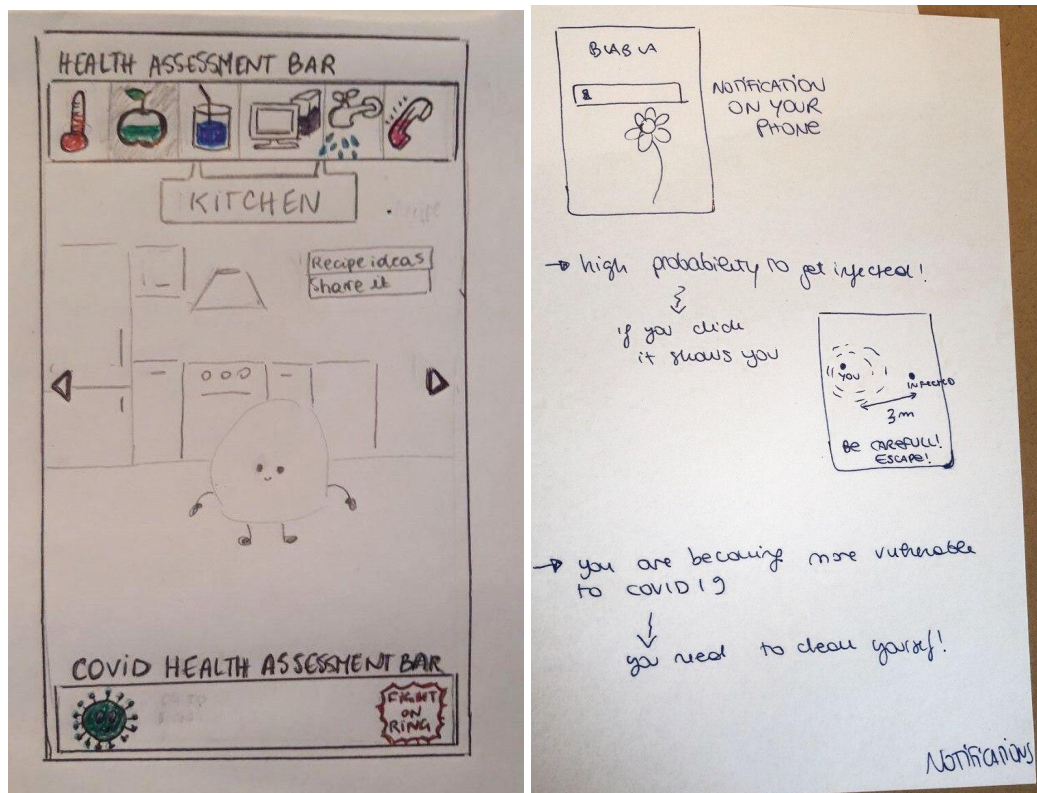 HEALTH ASSESSMENT BAR
KITCHEN
Recipe ideas
Share it
COVID HEALTH ASSESSMENT BAR
FIGHT
ON
RING
BLABLA
NOTIFICATION
ON YOUR
PHONE
→ high probability to get infected!
if you click
it shows you
YOU
INFECTED
3m
BE CAREFULL!
ESCAPE!
→ you are becoming more vulnerable
to COVID19
you need to clean yourself!
NOTIFICATIONS